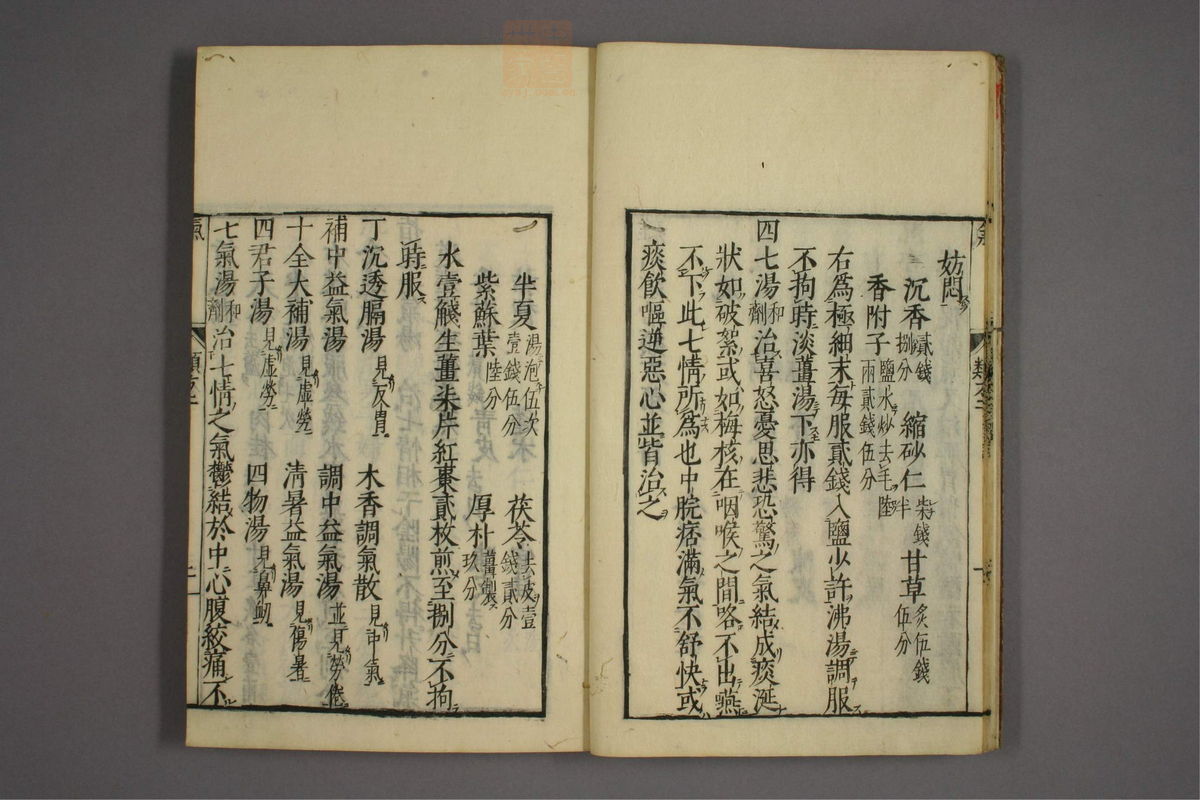 妨悶
沉香貳錢捌分 縮砂仁柒錢半 甘草炙伍錢伍分
香附子鹽水炒去毛陸兩貳錢伍分
右爲極細末毎服貳錢入鹽少許沸湯調服
不拘時淡薑湯下亦得
四七湯和劑治喜怒憂思悲恐驚之氣結成痰涎
狀如破絮或如梅核在咽喉之間咯不出嚥
不下此七情所爲也中脘痞滿氣不舒快或
痰飲嘔逆惡心並皆治之
半夏湯泡伍次壹錢伍分 茯苓去皮壹錢貳分
紫蘇葉陸分 厚朴薑製玖分
水壹觥生薑柒片紅棗貳枚煎至捌分不拘
時服
丁沉透膈湯見反胃 木香調氣散見中氣
補中益氣湯 調中益氣湯並見勞倦
十全大補湯見虛勞 清暑益氣湯見傷暑
四君子湯見虛勞 四物湯見鼻衂
七氣湯和劑治七情之氣鬱結於中心腹絞痛不